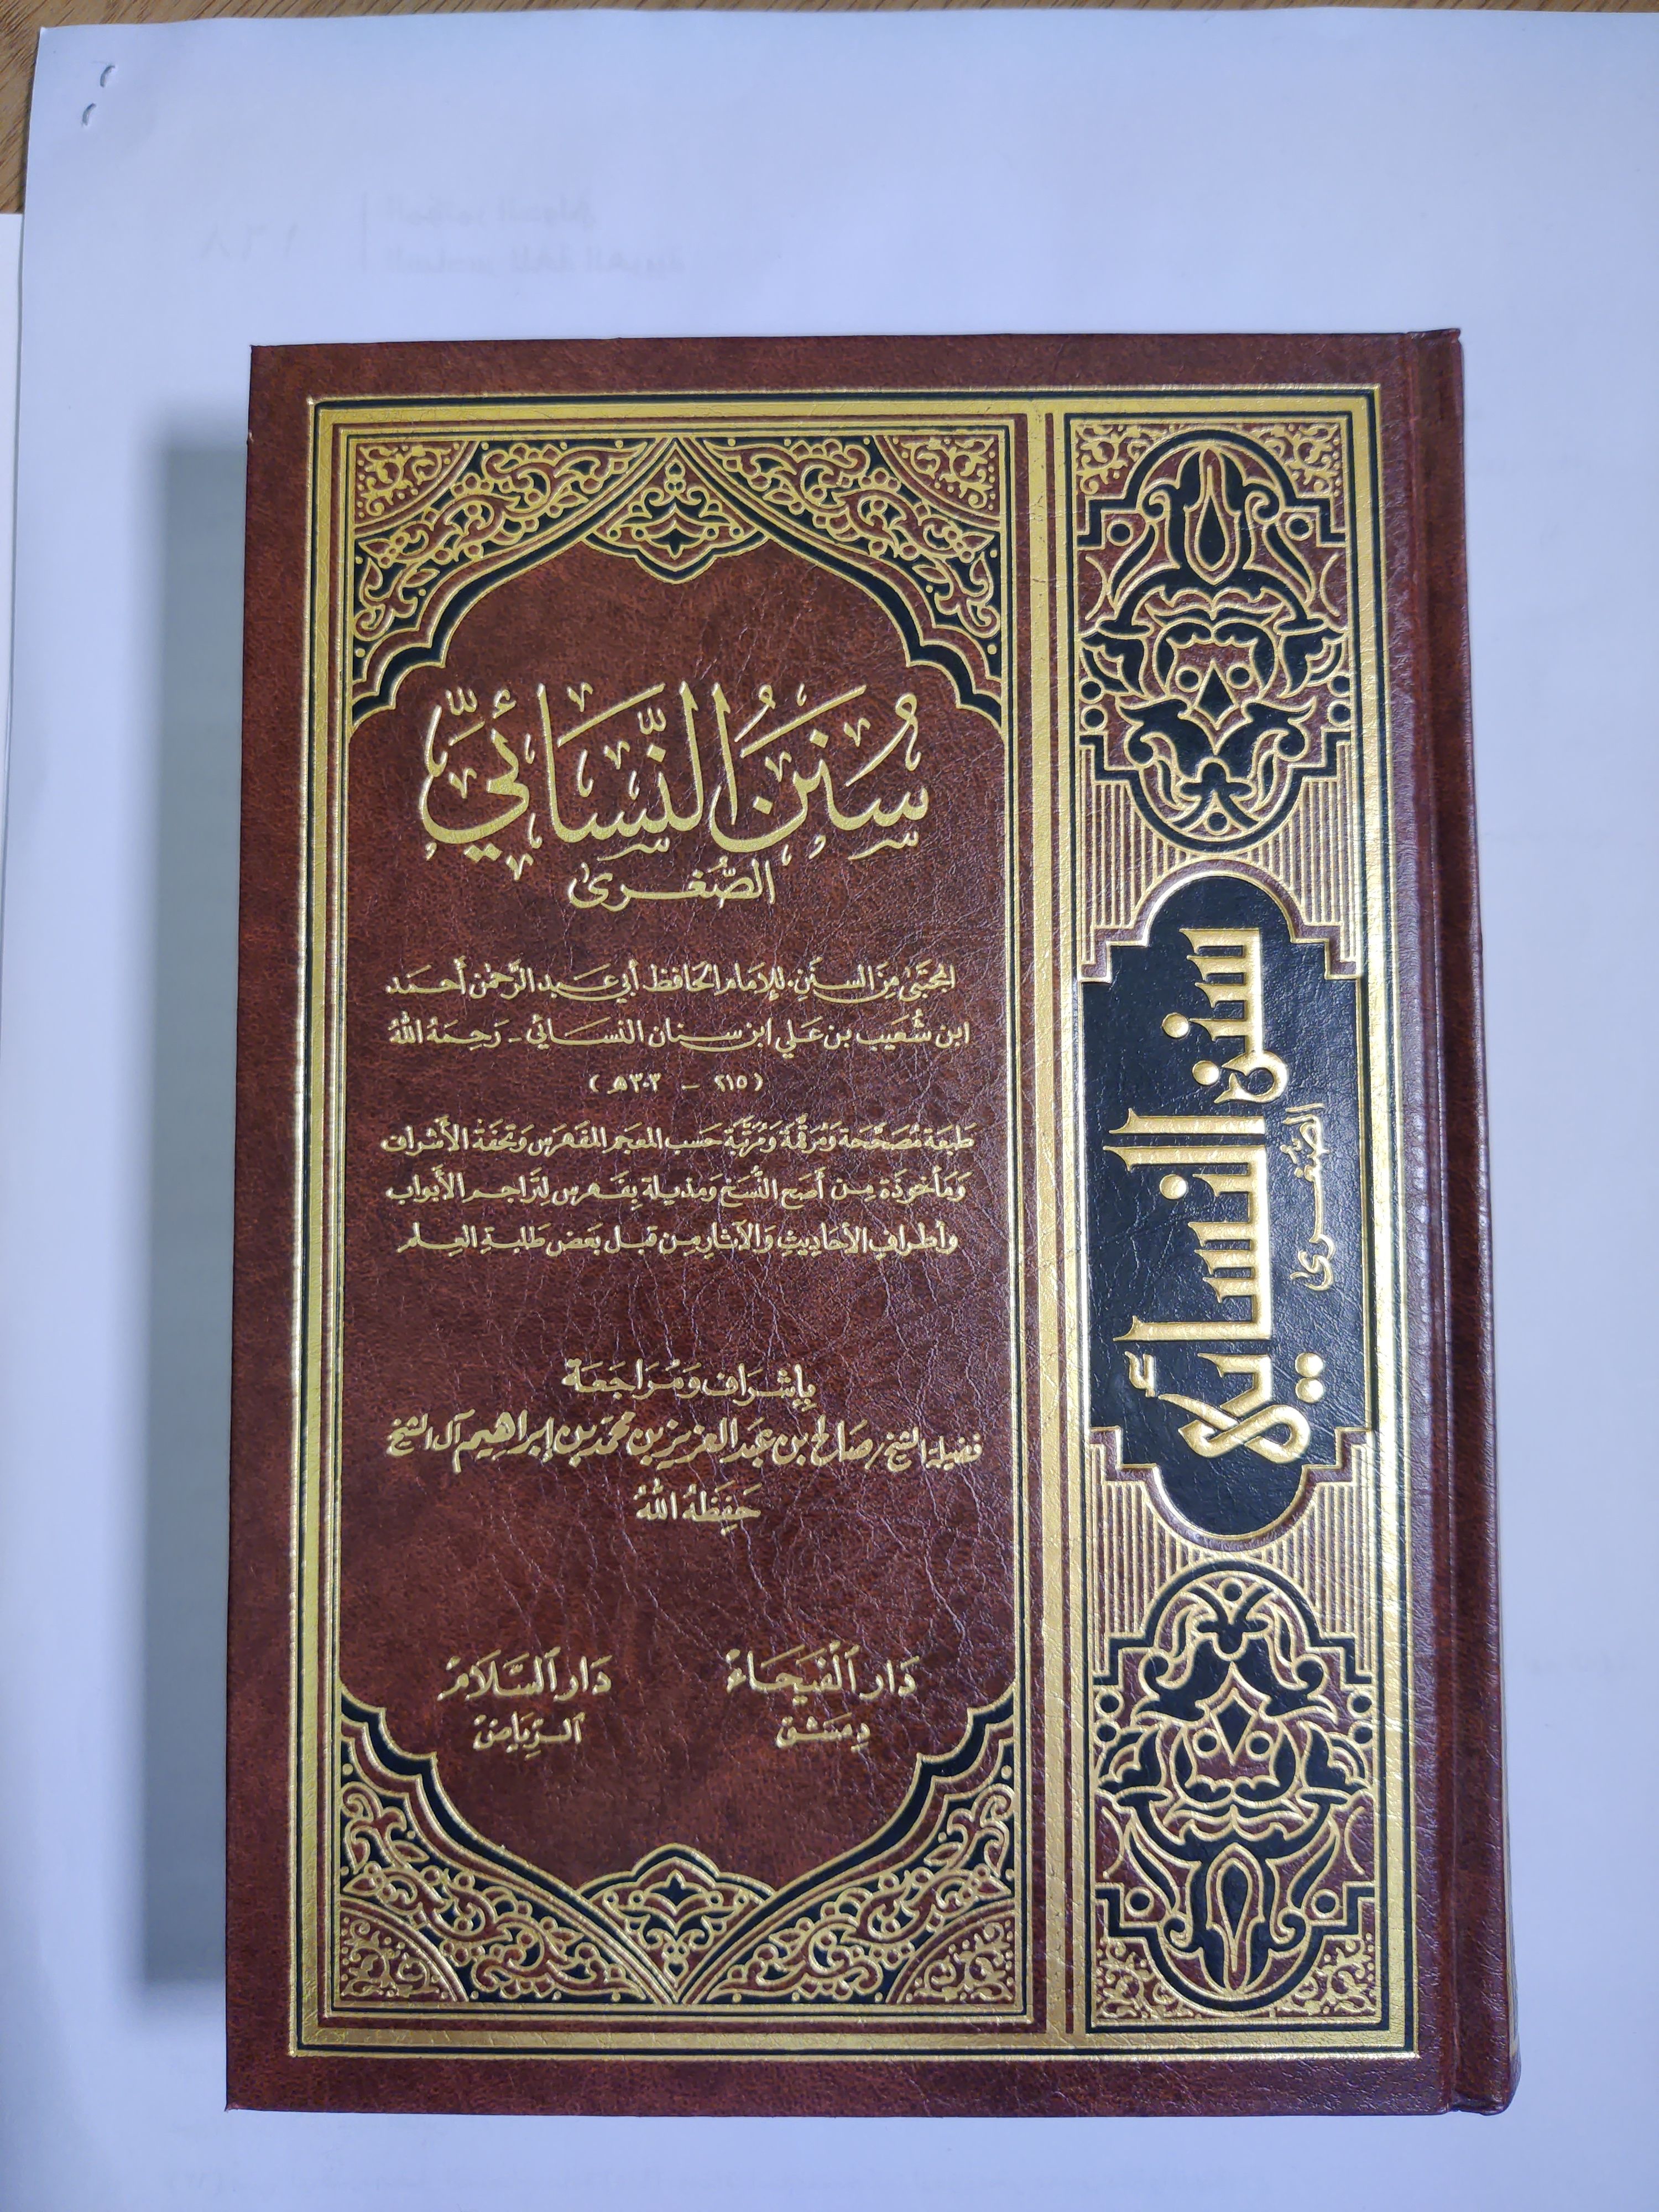 سُنَنُ النَّسَائِيِّ
الصُّغرى
المجتبى مِنَ السنَنِ للإمَام الحَافظ أبي عَبد الرَّحمٰن أحمَد
ابن شُعَيب بن عَلي ابن سنان النسَائي - رَحِمَهُ اللهُ
(٢١٥ - ٣٠٣هـ)
طبعَة مُصَحّحَة وَمُرقَّمَة وَمُرتَّبَة حَسَب المعجَم المفهرَس وَتحفَة الأشراف
وَمَأخوذَة مِن أصَح النُّسَخ وَمذيلة بِفَهرس لتَراجم الأبواب
وأطراف الأحَادِيثِ وَالآثارِ مِن قبل بَعض طَلبةِ العِلم
بإشرَاف وَمُرَاجَعَة
فضيلة الشيخ/ صَالح بن عَبد العَزيز بن محمّد بن إبراهيم آل الشيخ
حَفِظَهُ اللهُ
دَار الفَيحَاء
دمَشق
دَار السَّلَام
الريَاض
سنن النسائي
الصُّغرى